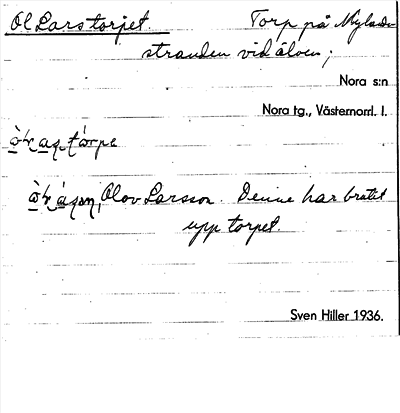 Ol Larstorpet. Torp på Nylands
stranden vid älven;
Nora s:n
Nora tg., Västernorrl. l.
Olov Larsson. Denne har brutit
upp torpet.
Sven Hiller 1936.